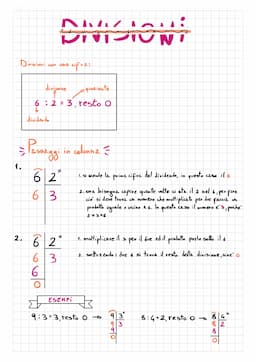 DIVISIONI
Divisioni con una cifra:
divisore quoziente
6 : 2 = 3, resto 0
dividendo
Passaggi in colonna
1.
6 2
3
1. si prende la prima cifra del dividendo, in questo caso il 6
2. ora bisogna capire quante volte ci sta il 2 nel 6, per fare
ciò si deve trovare un numero che moltiplicato per due faccia un
prodotto uguale o vicino a 6. In questo caso il numero è 3, perché
2.
6 2
6 3
6
0
1. moltiplicare il 3 per il due ed il prodotto porlo sotto il 6
2. sottraendo i due 6 si trova il resto della divisione, cioè 0
ESEMPI
9 : 3 = 3, resto 0 → 9 3
9 3
9
0
8 : 4 = 2, resto 0 → 8 4
8 2
8
0